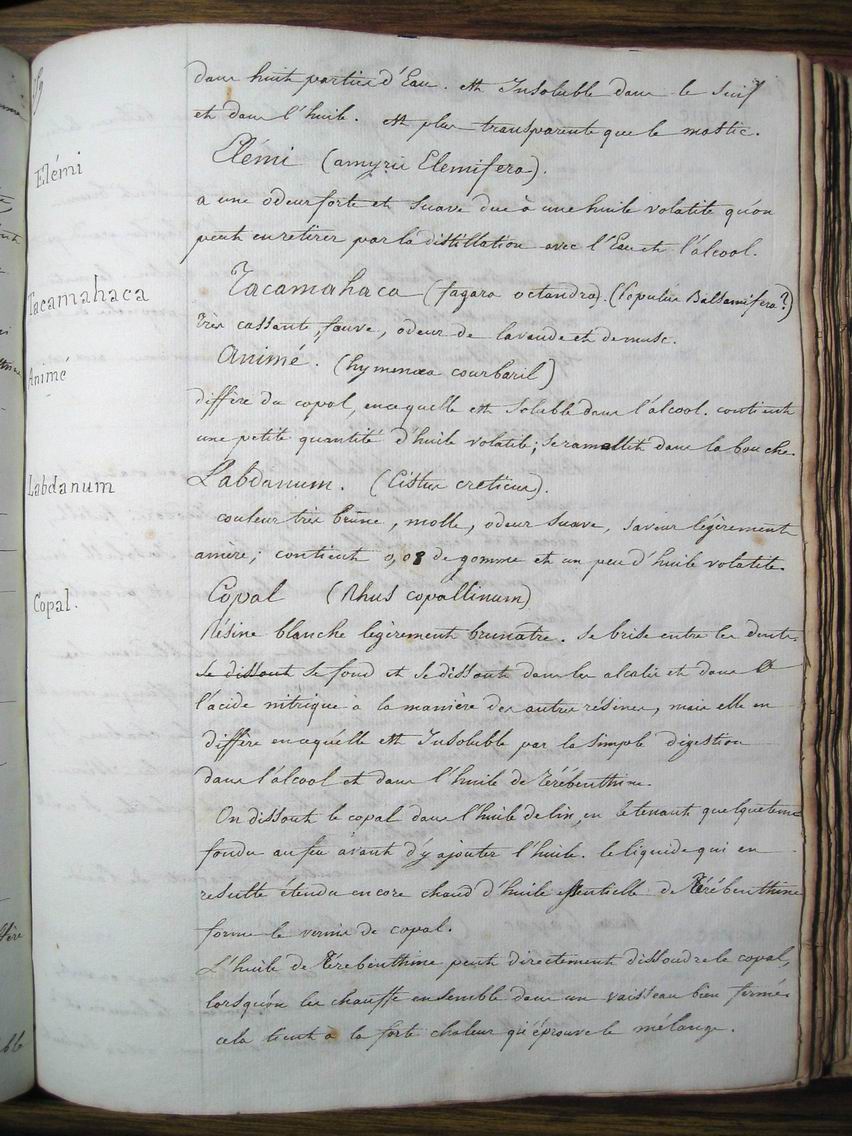 dans huit parties d'Eau. est Insoluble dans le Suif
et dans l'huile. est plus transparente que le mastic.
Elémi
Elémi (amyris Elemifera).
a une odeur forte et suave due à une huile volatile qu'on
peut en retirer par la distillation avec l'Eau et l'alcool.
Tacamahaca
Tacamahaca (fagara octandra). (Populus Balsamifera?)
Très cassante, fauve, odeur de lavande et de musc.
Animé
Animé. (hymenæa courbaril)
diffère du copal, en ce quelle est soluble dans l'alcool. contient
une petite quantité d'huile volatile; se ramollit dans la bouche.
Labdanum
Labdanum. (Cistus creticus).
couleur très brune, molle, odeur suave, saveur légèrement
amère; contient 0,08 de gomme et un peu d'huile volatile.
Copal.
Copal (Rhus copallinum)
Résine blanche légèrement brunatre. se brise entre les dents.
se dissout se fond et se dissout dans les alcalis et dans
l'acide nitrique à la manière des autres résines, mais elle en
diffère en ce qu'elle est Insoluble par la simple digestion
dans l'alcool et dans l'huile de Térébenthine.
On dissout le copal dans l'huile de lin, en le tenant quelque tems
fondu au feu avant d'y ajouter l'huile. le liquide qui en
resulte étendu encore chaud d'huile essentielle de Térébenthine
forme le vernis de copal.
L'huile de Térebenthine peut directement dissoudre le copal,
lorsqu'on les chauffe ensemble dans un vaisseau bien fermé.
cela tient à la forte chaleur qu'éprouve le mélange.